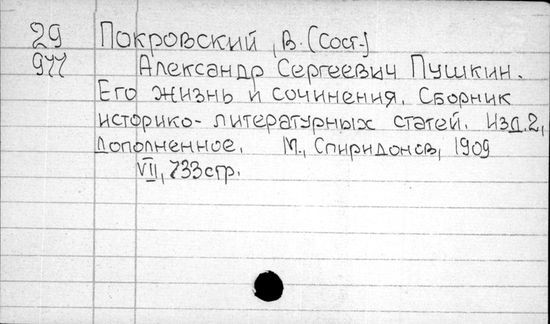 29 Покровский, В. (Сост.)
977 Александр Сергеевич Пушкин.
Его жизнь и сочинения. Сборник
историко-литературных статей. Изд.2,
дополненное. М., Спиридонов, 1909
VII, 733 стр.